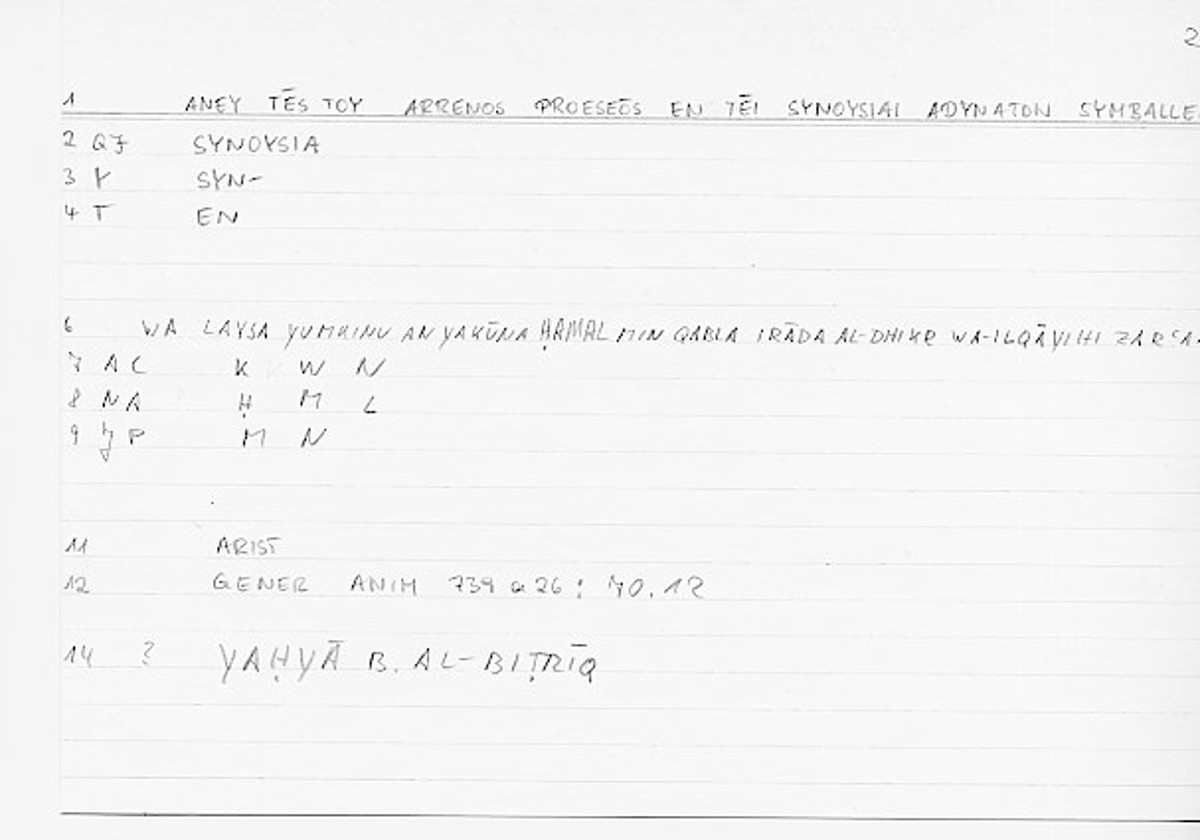 2
1 ANEY TĒS TOY ARRENOS PROESEŌS EN TĒI SYNOYSIAI ADYNATON SYMBALLE
2 QJ SYNOYSIA
3 Y SYN-
4 T EN
6 WA LAYSA YUMKINU AN YAKŪNA ḤAMAL MIN QABLA IRĀDA AL-DHIKR WA-ILQĀYIHI ZARʿA
7 AC K W N
8 NA Ḥ M L
9 P M N
11 ARIST
12 GENER ANIM 739 a 26 : 70.12
14 ? YAḤYĀ B. AL-BIṬRĪQ